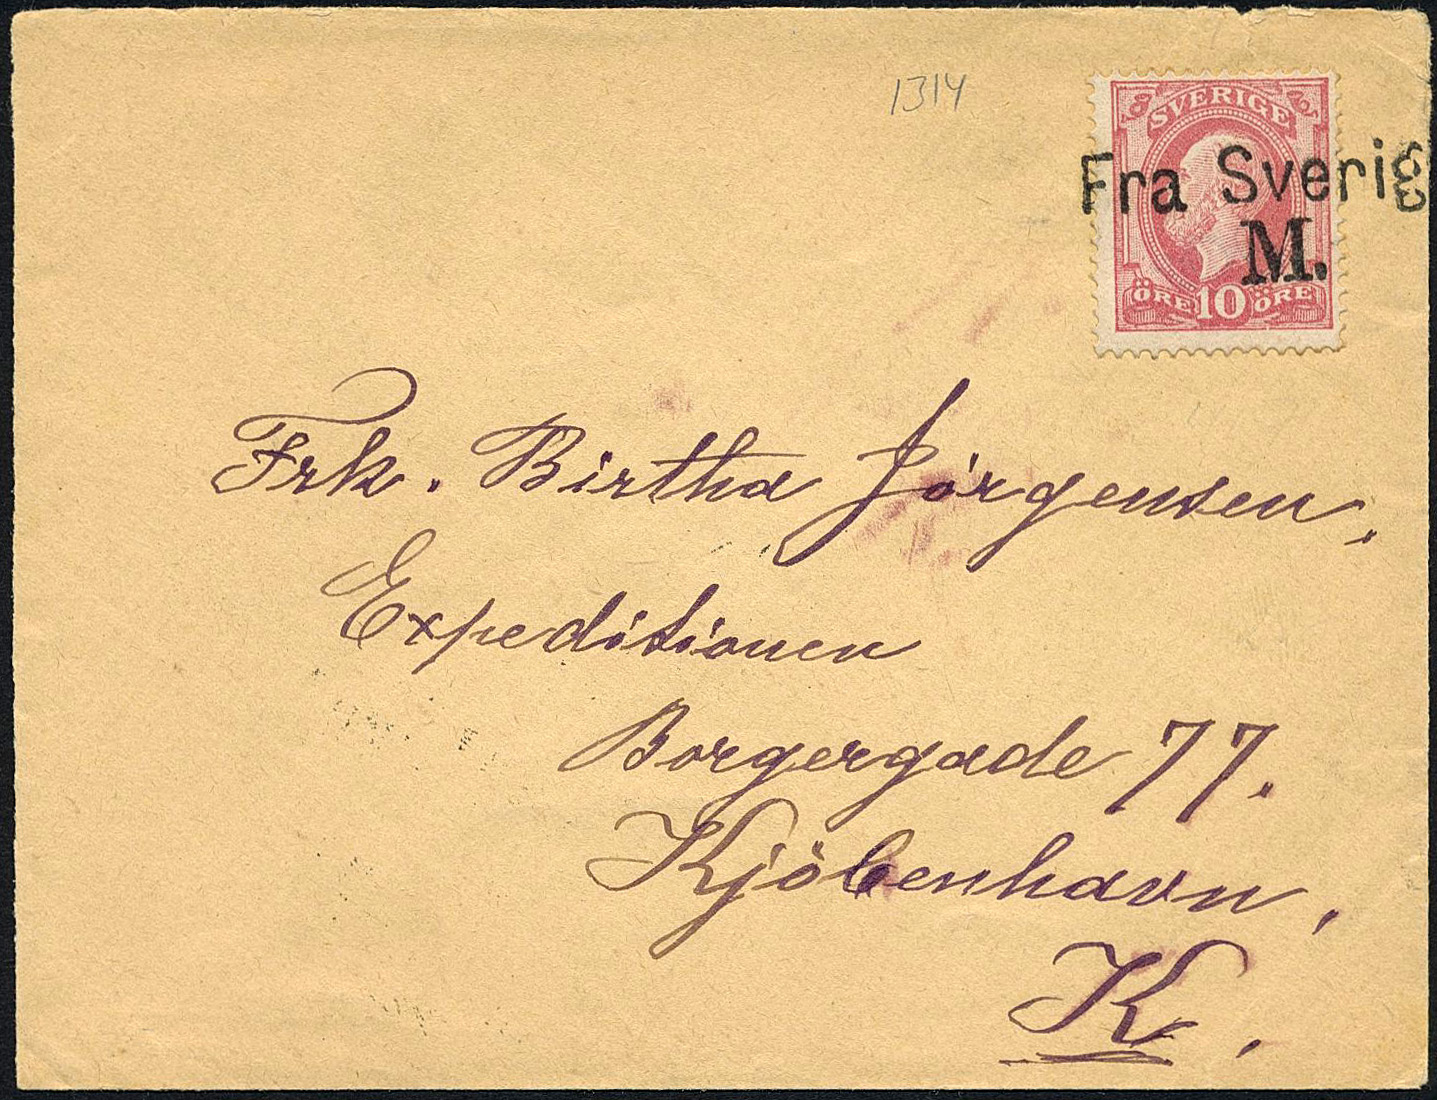 1314
SVERIGE
Fra Sverig
M.
ÖRE 10 ÖRE
Frk. Birtha Jörgensen,
Expeditionen
Borgergade 77.
Kjöbenhavn,
K.